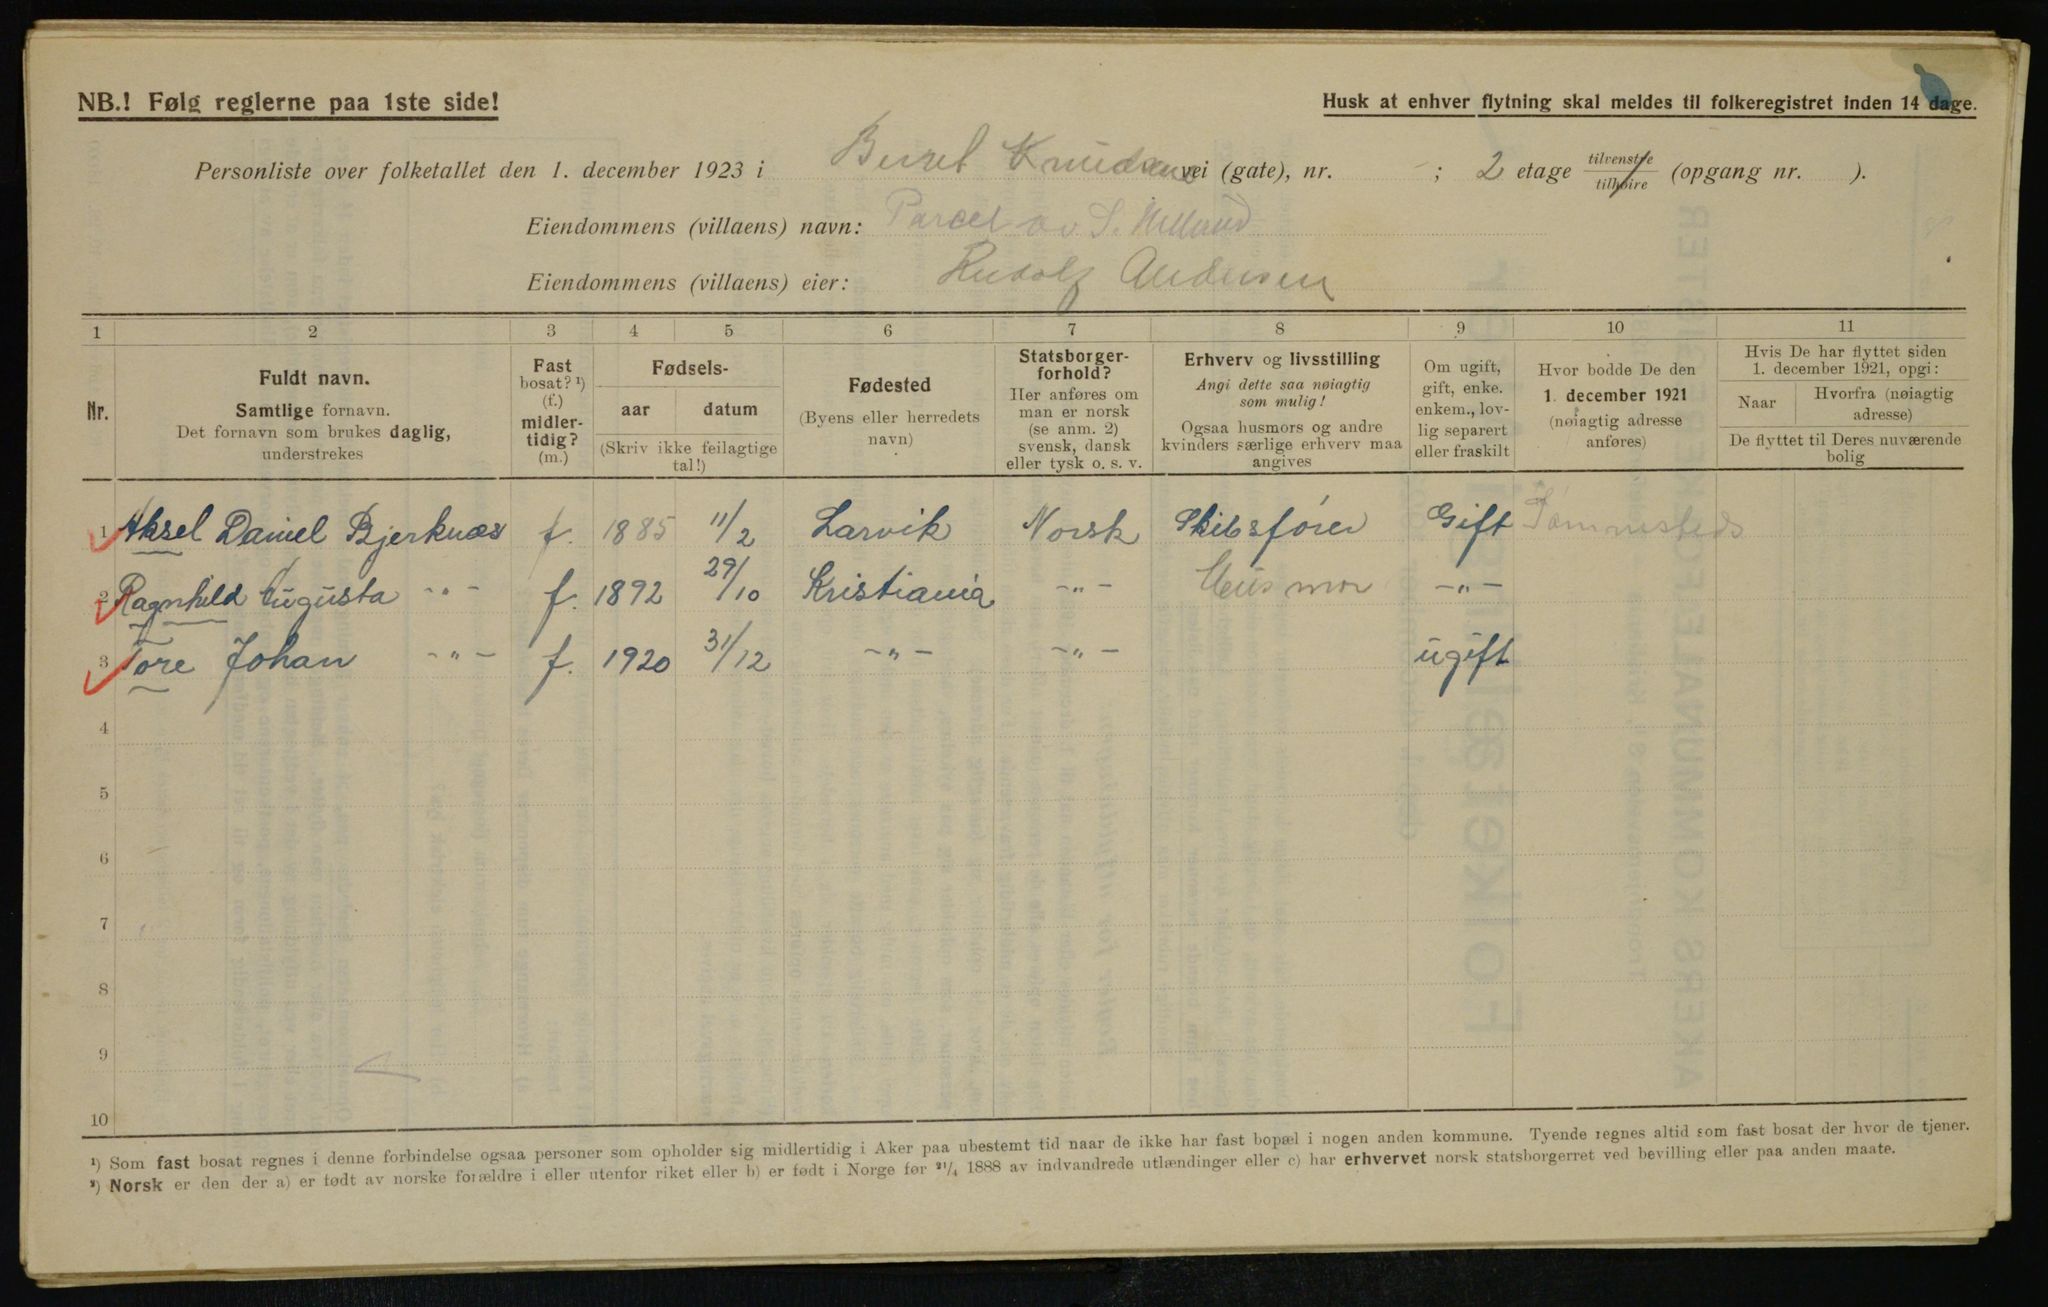 NB.! Følg reglerne paa 1ste side!
Husk at enhver flytning skal meldes til folkeregistret inden 14 dage.
Personliste over folketallet den 1. december 1923 i Knudsens vei (gate), nr. ; 2 etage tilvenstre / tilhøire (opgang nr. ).
Eiendommens (villaens) navn: Parcel av S.
Eiendommens (villaens) eier: Rudolf Andersen
1 2 3 4 5 6 7 8 9 10 11
Nr.
Fuldt navn.
Samtlige fornavn.
Det fornavn som brukes daglig,
understrekes
Fast
bosat? ¹)
(f.)
midler-
tidig?
(m.)
Fødsels-
aar datum
(Skriv ikke feilagtige
tal!)
Fødested
(Byens eller herredets
navn)
Statsborger-
forhold?
Her anføres om
man er norsk
(se anm. 2)
svensk, dansk
eller tysk o. s. v.
Erhverv og livsstilling
Angi dette saa nøiagtig
som mulig!
Ogsaa husmors og andre
kvinders særlige erhverv maa
angives
Om ugift,
gift, enke.
enkem., lov-
lig separert
eller fraskilt
Hvor bodde De den
1. december 1921
(nøiagtig adresse
anføres)
Hvis De har flyttet siden
1. december 1921, opgi:
Naar
Hvorfra (nøiagtig
adresse)
De flyttet til Deres nuværende
bolig
1 Aksel Daniel Bjerknæs f. 1885 11/2 Larvik Norsk Skibsfører Gift
2 Ragnhild Augusta -"- f. 1892 29/10 Kristiania -"- Husmor -"-
3 Tore Johan -"- f. 1920 31/12 -"- -"- ugift
4
5
6
7
8
9
10
¹) Som fast bosat regnes i denne forbindelse ogsaa personer som opholder sig midlertidig i Aker paa ubestemt tid naar de ikke har fast bopæl i nogen anden kommune. Tyende regnes altid som fast bosat der hvor de tjener.
²) Norsk er den der a) er født av norske forældre i eller utenfor riket eller b) er født i Norge før ²¹/₄ 1888 av indvandrede utlændinger eller c) har erhvervet norsk statsborgerret ved bevilling eller paa anden maate.